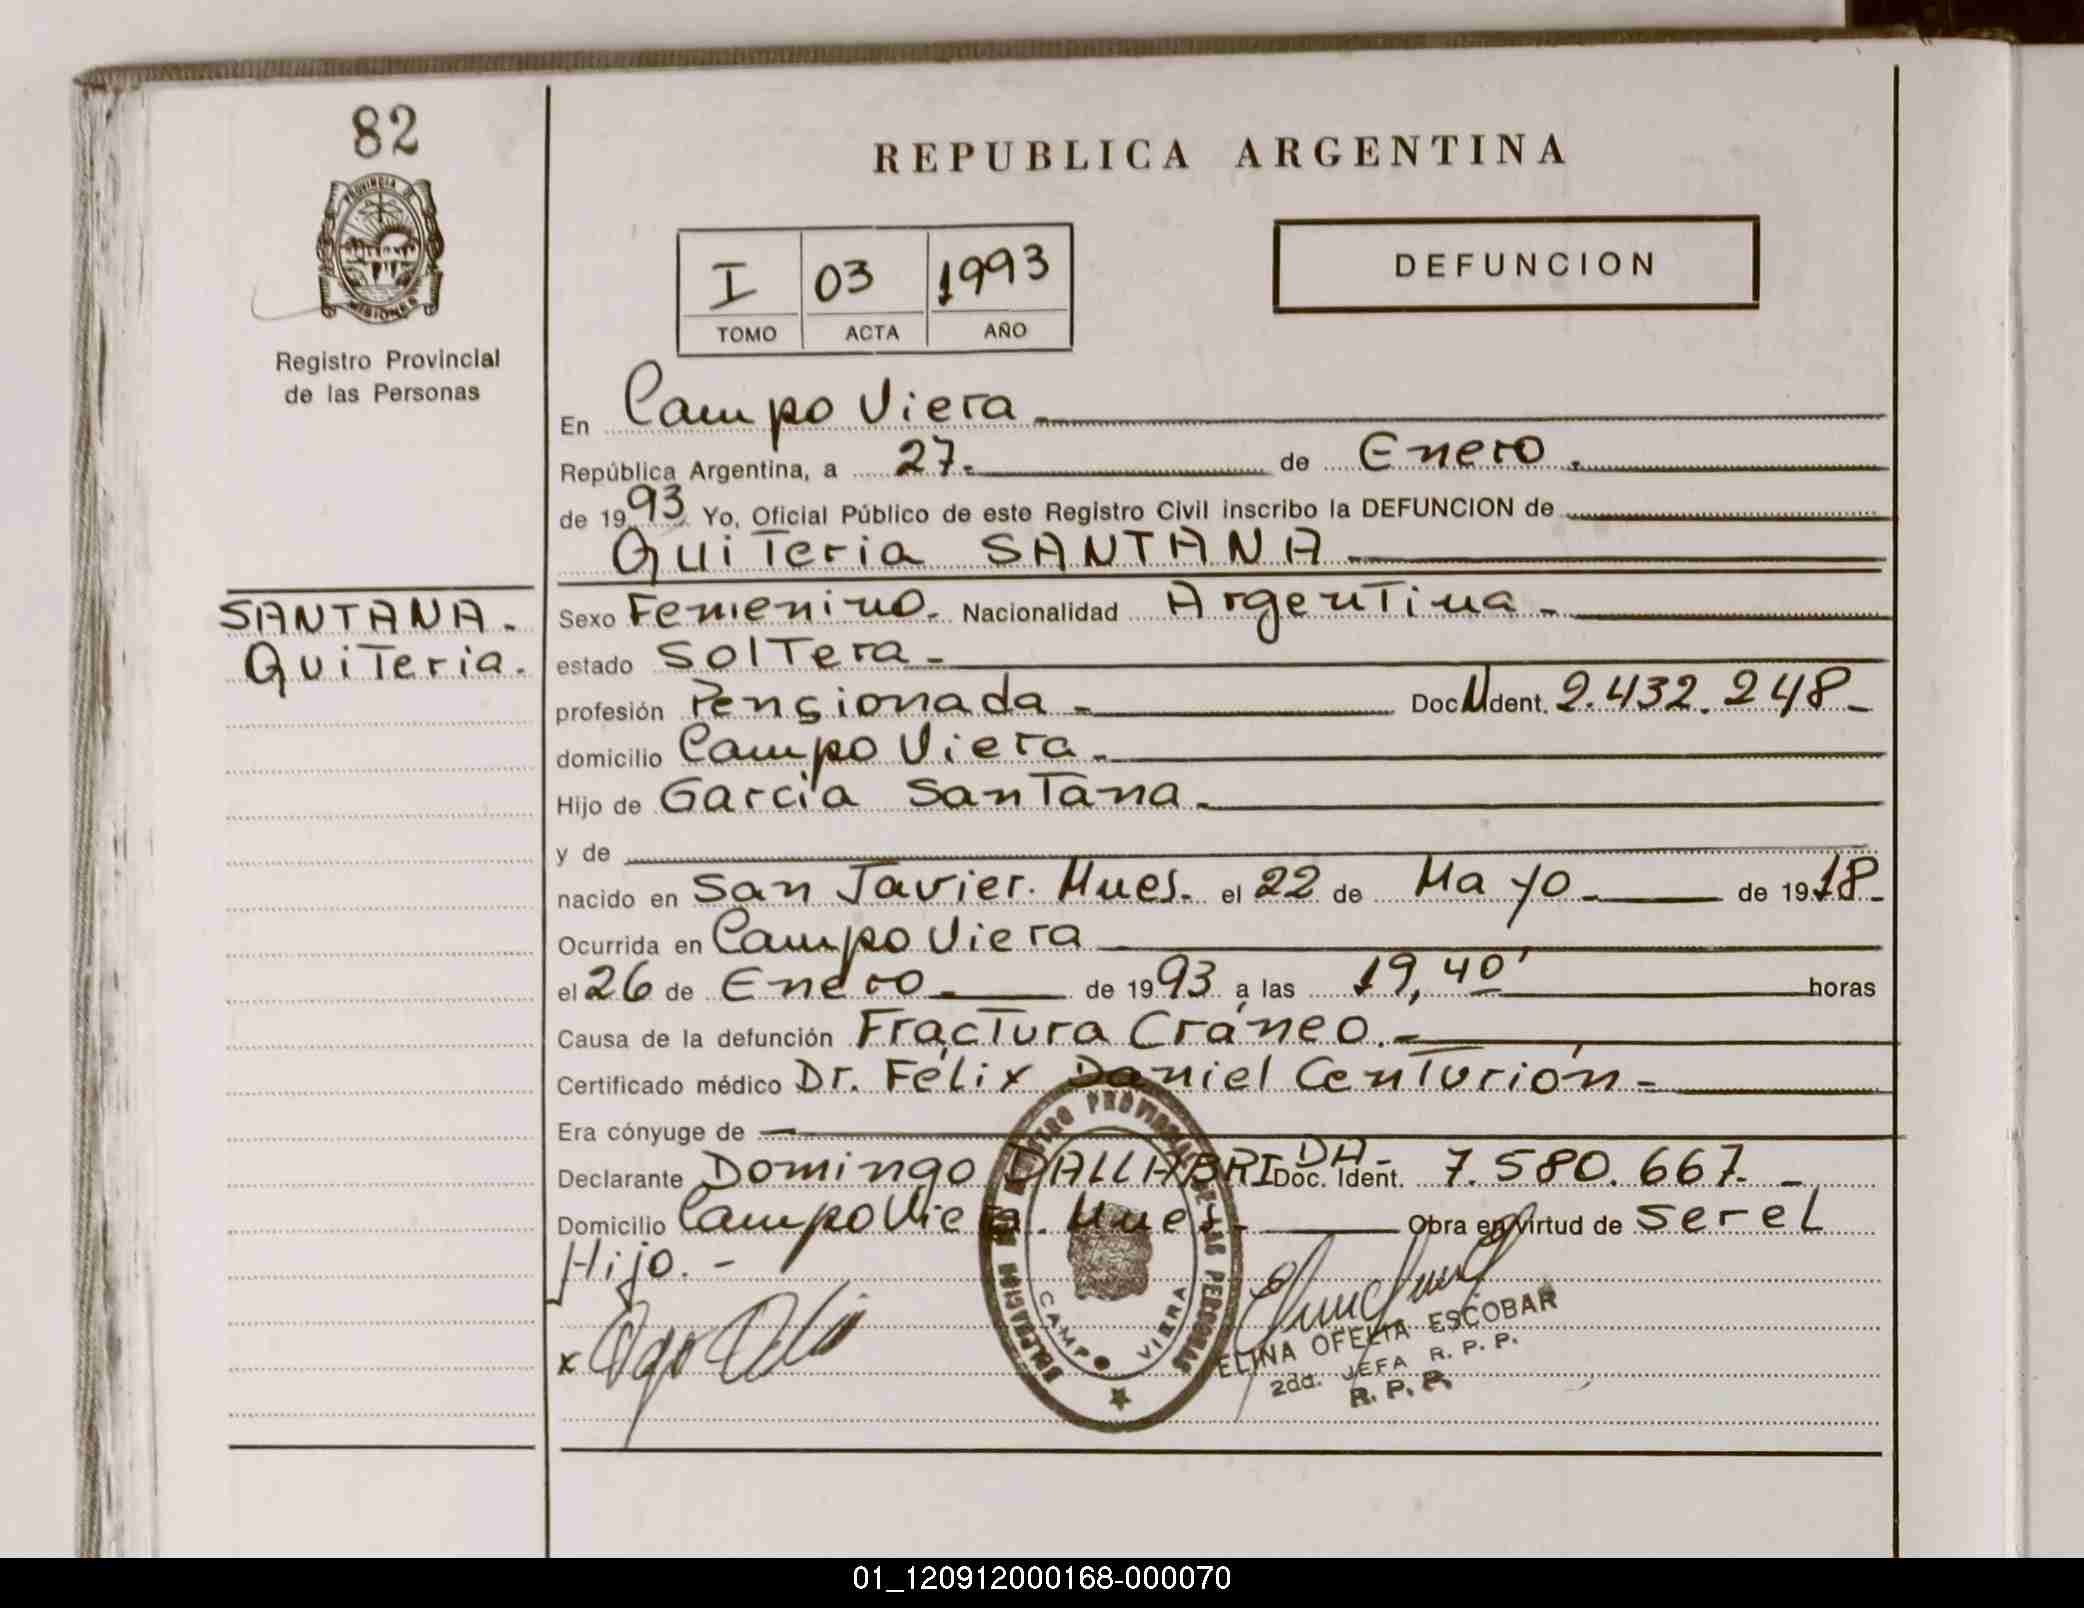 82
PROVINCIA DE
MISIONES
Registro Provincial
de las Personas
REPUBLICA ARGENTINA
I 03 1993
TOMO ACTA AÑO
DEFUNCION
En Campo Viera
República Argentina, a 27. de Enero.
de 1993 Yo, Oficial Público de este Registro Civil inscribo la DEFUNCION de
Quiteria SANTANA
SANTANA.
Quiteria.
Sexo Femenino. Nacionalidad Argentina
estado Soltera
profesión Pensionada Doc. Ident. 2.432.248
domicilio Campo Viera
Hijo de Garcia Santana
y de
nacido en San Javier. Mnes. el 22 de Mayo de 1918
Ocurrida en Campo Viera
el 26 de Enero de 1993 a las 19,40' horas
Causa de la defunción Fractura Cráneo.
Certificado médico Dr. Félix Daniel Centurión
Era cónyuge de
Declarante Domingo DALLABRIDA Doc. Ident. 7.580.667
Domicilio Campo Viera. Mnes. Obra en virtud de ser el
Hijo. -
x
REGISTRO PROVINCIAL DE LAS PERSONAS
DELEGACION
CAMPO VIERA
ELINA OFELIA ESCOBAR
2da. JEFA R. P. P.
R. P. P.
01_120912000168-000070